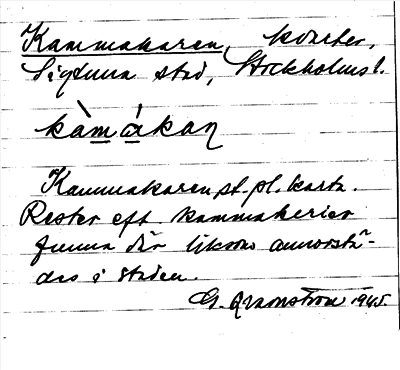 Kammakaren, kvarter,
Sigtuna stad, Stockholms l.
kàmákaɳ
Kammakaren st.pl.karta.
Rester eft. kammakerier
finna där liksom annorstä-
des i staden.
G. Qvarnström 1945.